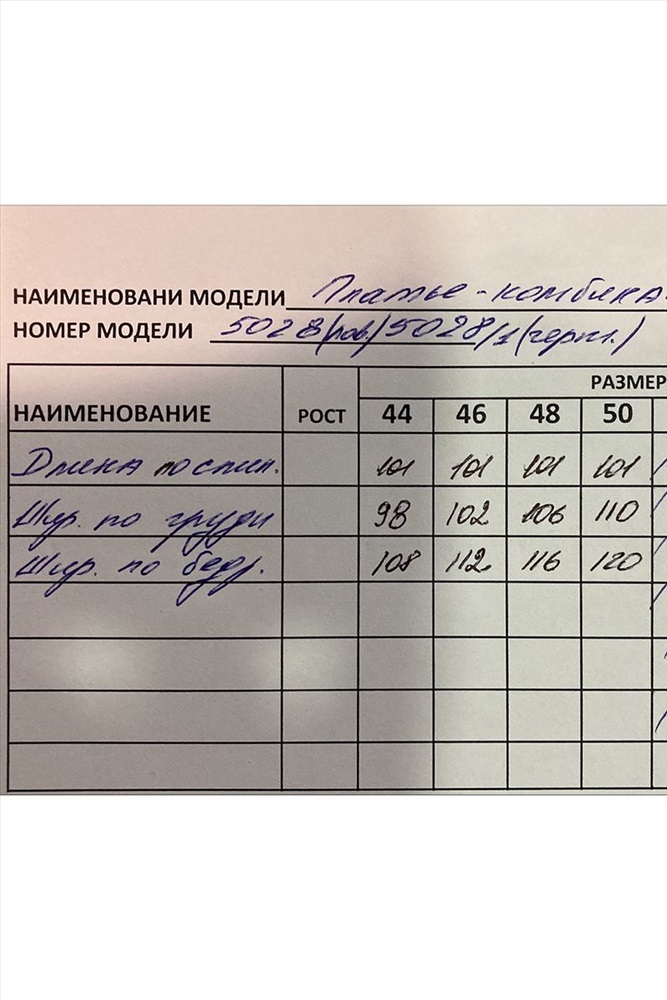 НАИМЕНОВАНИ МОДЕЛИ Платье-комбина
НОМЕР МОДЕЛИ 5028 5028/1(черн.)
РАЗМЕР
НАИМЕНОВАНИЕ РОСТ 44 46 48 50
Длина по спин. 101 101 101 101
Шир. по груди 98 102 106 110
Шир. по бедр. 108 112 116 120